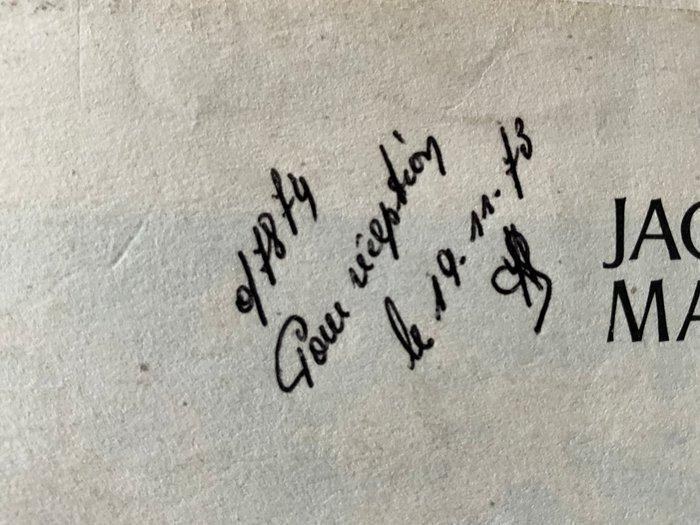 d/7874
Pour réception
le 19.11.73
JAC
MA